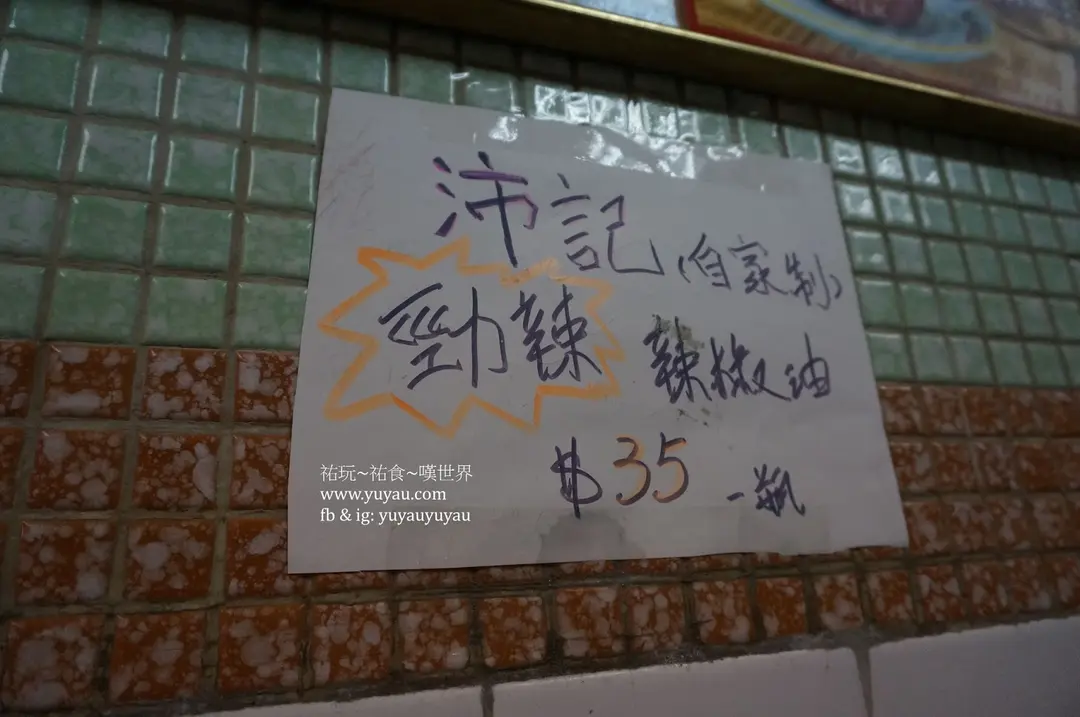 沛記(自家制)
勁辣 辣椒油
$35 一瓶
祐玩~祐食~嘆世界
www.yuyau.com
fb & ig: yuyauyuyau